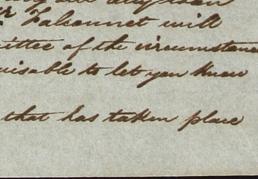 Falconnet will
ittee of the circumstance
visable to let you know
that has taken place